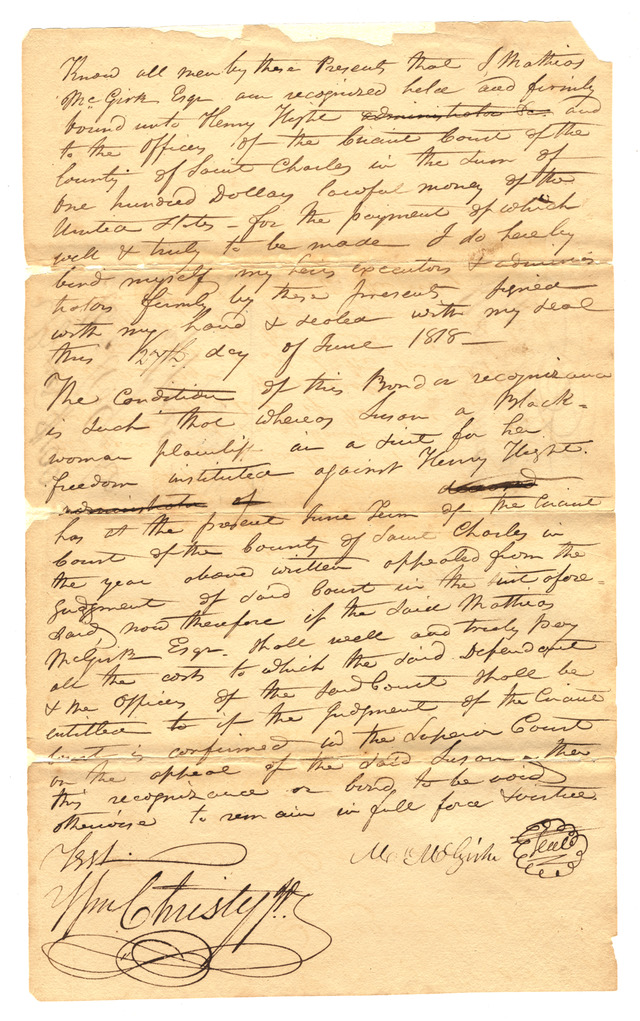 Know all men by these Presents that I Mathias
McGirk Esqr am recognized held and firmly
bound unto Henry Hight administrator &c. and
to the Officers of the Circuit Court of the
County of Saint Charles in the Sum of
One hundred Dollars lawful money of the
United States - for the payment of which
well & truly to be made I do hereby
bind myself my heirs executors & adminis
trators firmly by these presents signed
with my hand & sealed with my seal
this day of June 1818 -
The Condition of this Bond or recognizance
is such that whereas Susan a Black=
woman plaintiff in a suit for her
freedom instituted against Henry Hight.
administrator of deceased
has at the present June Term of the Circuit
Court of the County of Saint Charles in
the year above written appealed from the
Judgment of said Court in the suit afore=
said, now therefore if the said Mathias
McGirk Esqr. shall well and truly pay
all the costs to which the said Defendant
& the Officers of the said Court shall be
entitled to if the Judgment of the Circuit
Court is confirmed in the Superior Court
on the appeal of the said Susan - then
this recognizance or bond to be void
otherwise to remain in full force & virtue.
Test. Ms. McGirk Seal
Wm Christy Jr.